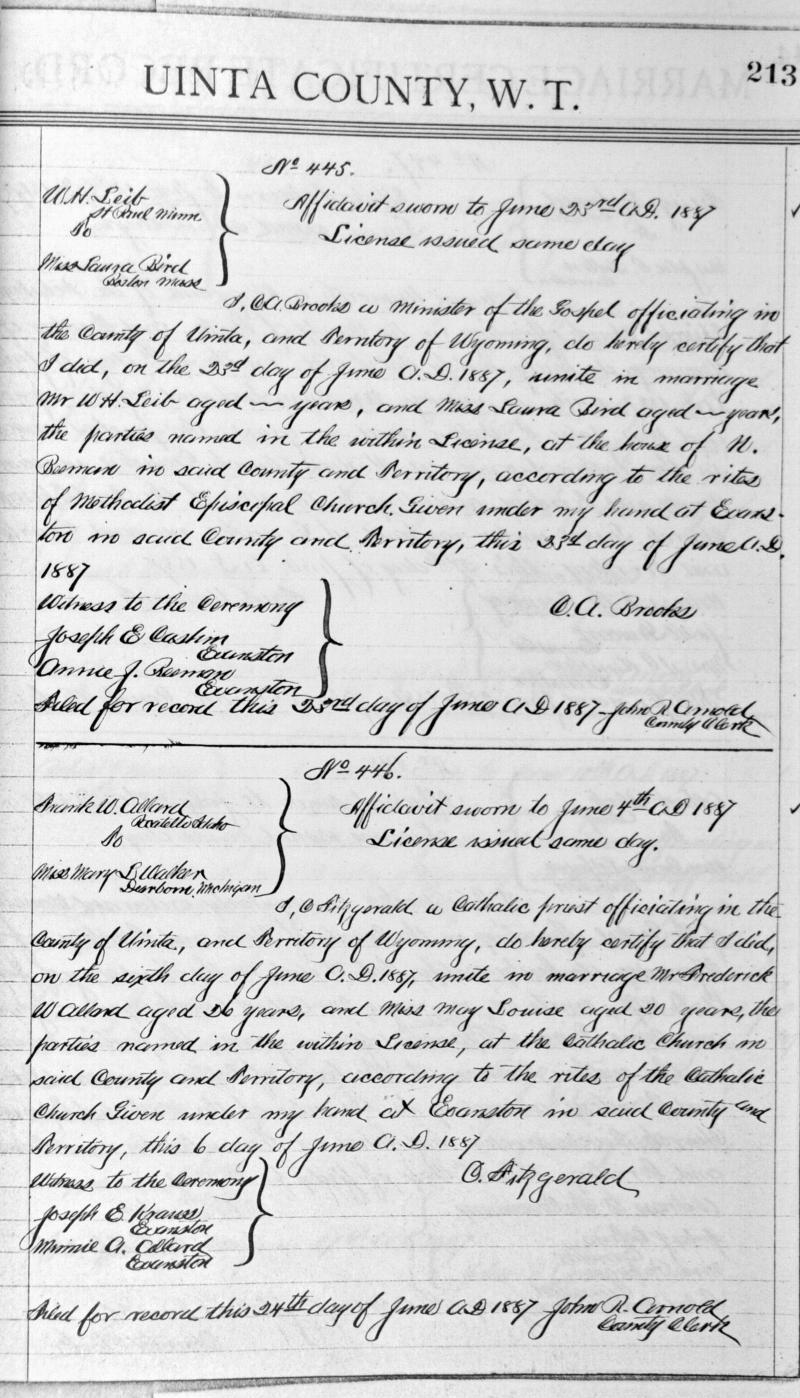 213
UINTA COUNTY, W.T.
No 445.
W.H. Leib
St Paul Minn
To
Miss Laura Bird
Boston Mass
Affidavit sworn to June 23rd A.D. 1887
License issued same day
I, C.A. Brooks a Minister of the Gospel officiating in
the County of Uinta, and Territory of Wyoming, do hereby certify that
I did, on the 23d day of June A.D. 1887, unite in marriage
Mr W H. Leib aged — years, and Miss Laura Bird aged — years,
the parties named in the within License, at the house of N.
Beeman in said County and Territory, according to the rites
of Methodist Episcopal Church. Given under my hand at Evans-
ton in said County and Territory, this 23d day of June A.D.
1887
Witness to the Ceremony
Joseph E Cashin
Evanston
Annie J. Beeman
Evanston
C.A. Brooks
Filed for record this 23rd day of June A D 1887 - John R. Arnold
County Clerk
No 446.
Frank W. Allard
Pocatello Idaho
To
Miss Mary L Walker
Dearborn, Michigan
Affidavit sworn to June 4th A D 1887
License issued same day.
I, C Fitzgerald a Catholic priest officiating in the
County of Uinta, and Territory of Wyoming, do hereby certify that I did,
on the sixth day of June A.D. 1887, unite in marriage Mr Frederick
W Allard aged 26 years, and Miss May Louise aged 20 years, the
parties named in the within License, at the Catholic Church in
said County and Territory, according to the rites of the Catholic
Church Given under my hand at Evanston in said County and
Territory, this 6 day of June A. D. 1887
Witness to the Ceremony
Joseph E Krauss
Evanston
Minnie A. Allard
Evanston
C. Fitzgerald
Filed for record this 24th day of June A D 1887 John R. Arnold
County Clerk